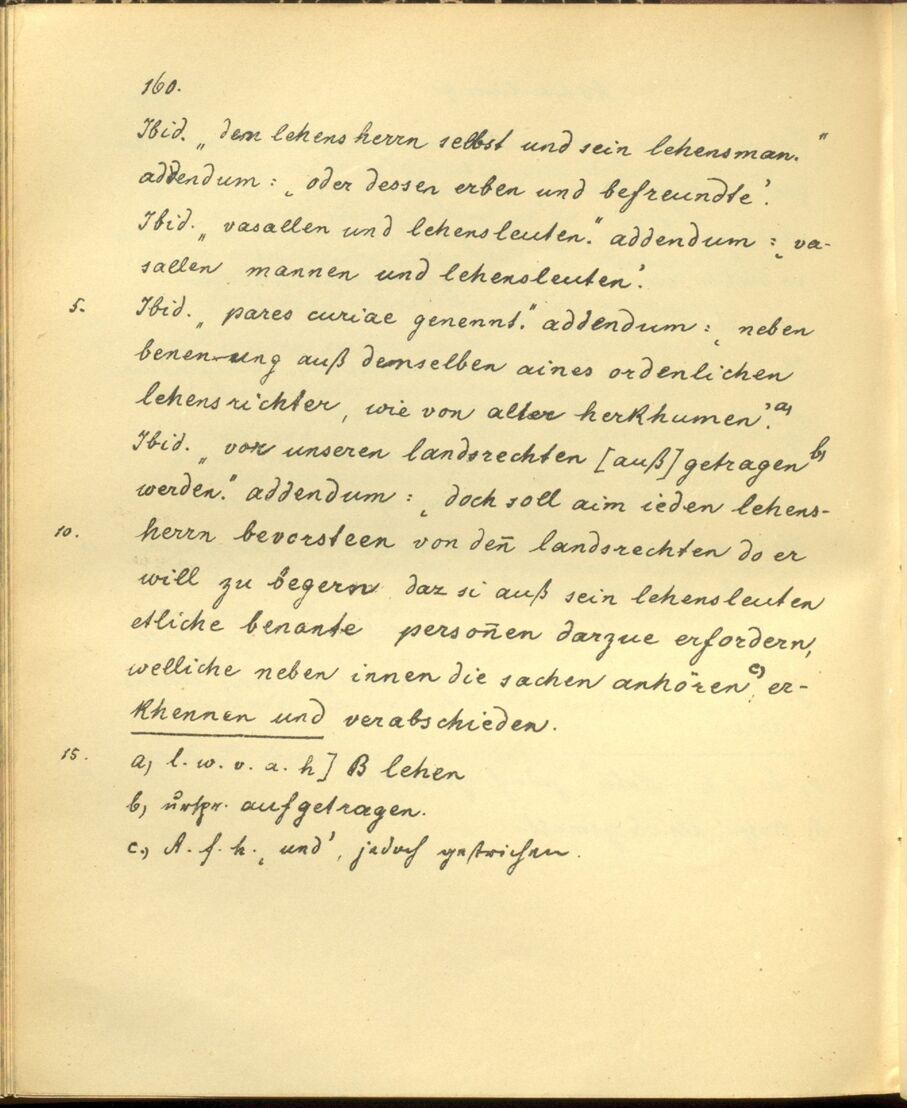 160.
Ibid. „dem lehensherrn selbst und sein lehensman.“
addendum: ‚oder dessen erben und befreundte‘.
Ibid. „vasallen und lehensleuten.“ addendum: ‚va-
sallen mannen und lehensleuten‘.
5. Ibid. „pares curiae genennt.“ addendum: ‚neben
benennung auß demselben aines ordenlichen
lehensrichter, wie von alter herkhumen‘. a)
Ibid. „vor unseren landsrechten [auß]getragen b)
werden.“ addendum: ‚doch soll aim ieden lehens-
10. herrn bevorsteen von den̄ landsrechten do er
will zu begern daz si auß sein lehensleuten
etliche benante person̄en darzue erfordern,
welliche neben innen die sachen anhören c), er-
khennen und verabschieden.
15. a) l. w. v. a. h] B lehen
b) urspr. aufgetragen.
c) A. f. h. ‚und‘, jedoch gestrichen.